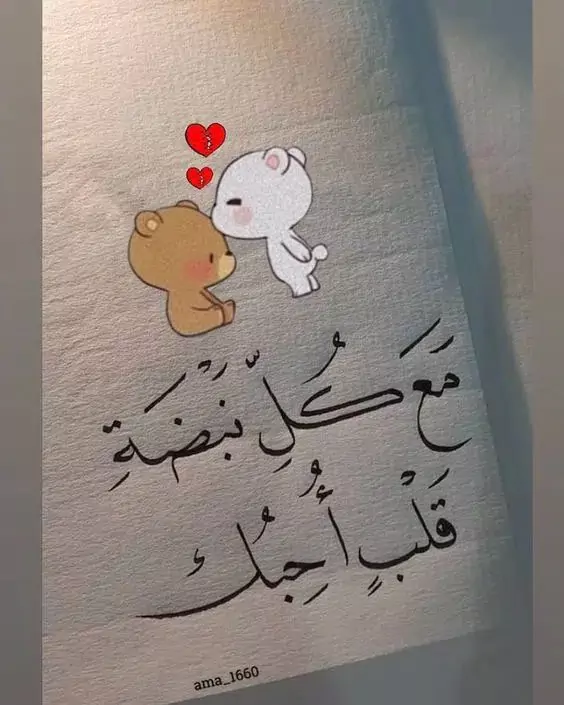 مَعَ كُلِّ نَبْضَةِ
قَلْبٍ أُحِبُك
ama_1660